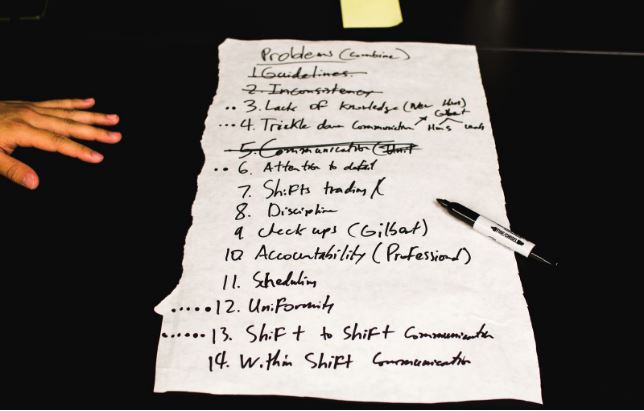 Problems (Combine)
1. Guidelines
2. Inconsistency
3. Lack of Knowledge (New Hires)
Gilbert
4. Trickle down Communication
5. Communication (Unit
6. Attention to detail
7. Shifts trading
8. Discipline
9 check ups (Gilbert)
10. Accountability (Professional)
11. Scheduling
12. Uniformity
13. Shift to Shift Communication
14. Within Shift Communication